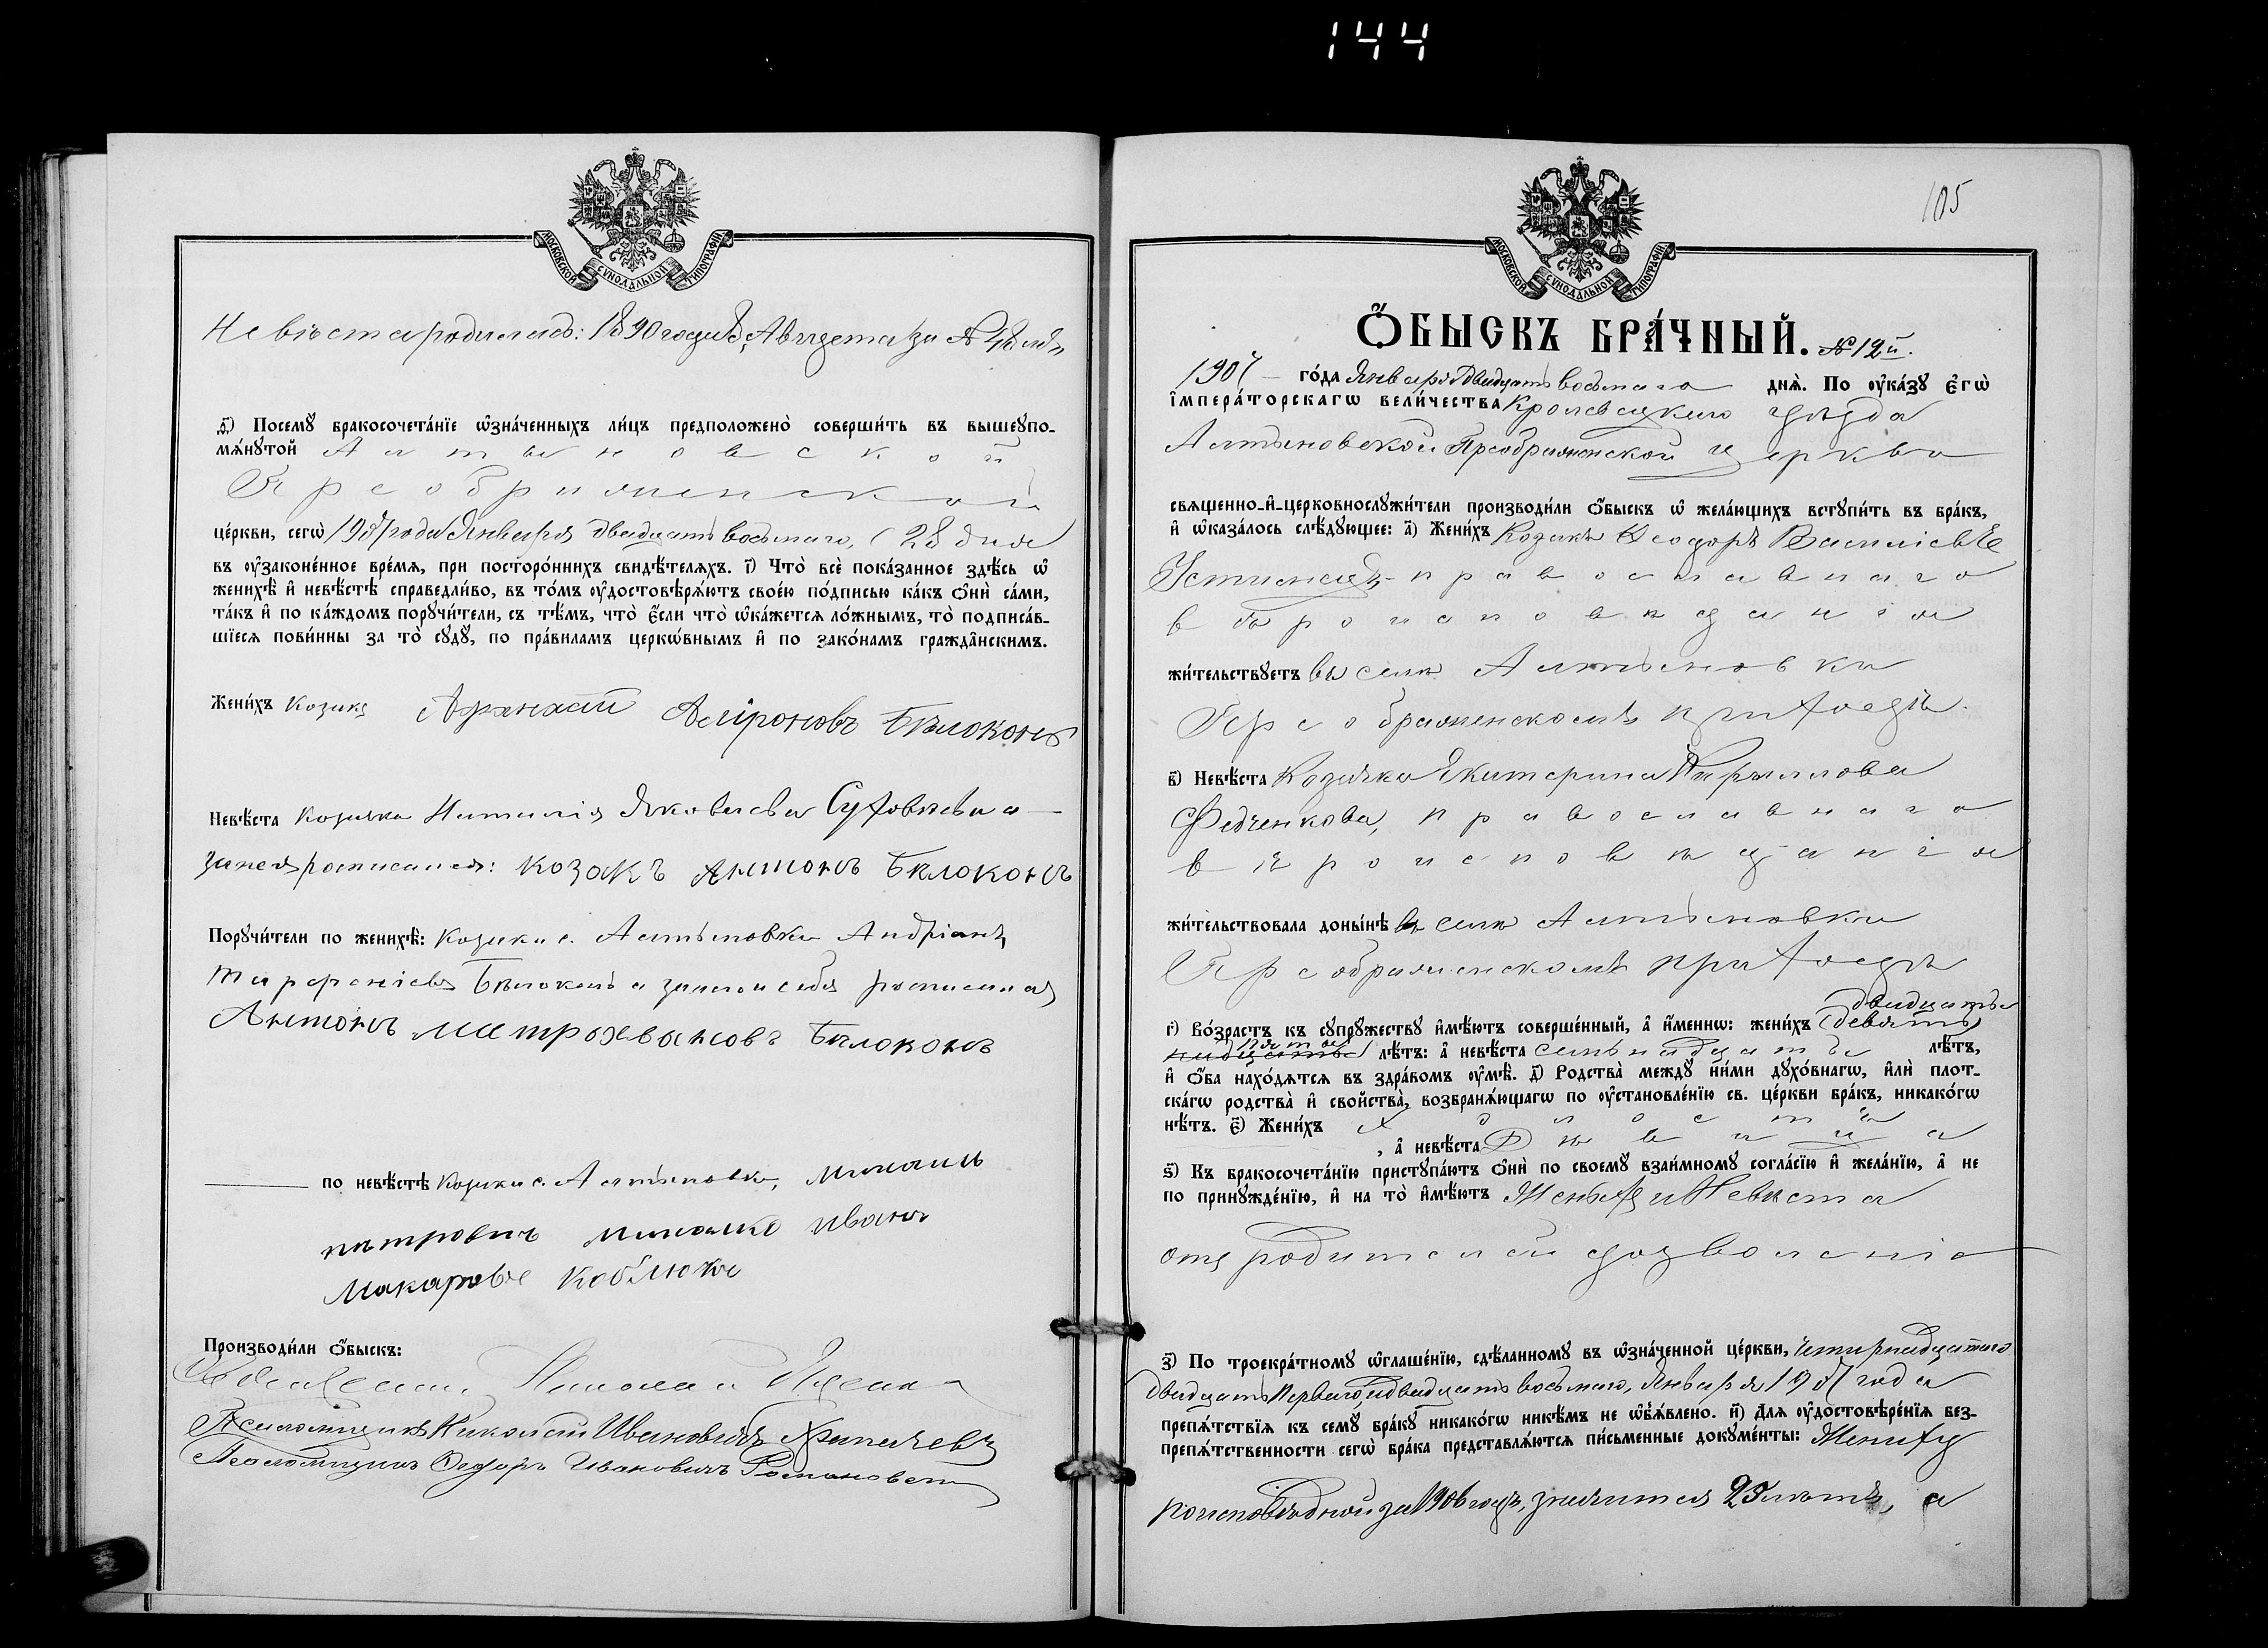 144
МОСКОВСКОЙ СУНОДАЛЬНОЙ ТИПОГРАФІИ
Невѣста родилась: 1890 года, Августа за № 48
д҃і) Посемꙋ бракосочета́нїе ѡ҆зна́ченныхъ ли́цъ предположено̀ соверши́ть въ вышеꙋпо-
мѧ́нꙋтой Алтыновской
Преображенской
це́ркви, сегѡ̀ 1907 года Января двадцать восьмаго, (28 дня
въ ᲂу҆законе́нное вре́мѧ, при посторо́ннихъ свидѣ́телѧхъ. і҃) Что̀ всѐ пока́занное здѣ́сь ѡ҆
женихѣ̀ и҆ невѣ́стѣ справедли́во, въ то́мъ ᲂу҆достовѣрѧ́ютъ свое́ю по́дписью ка́къ ѻ҆нѝ са́ми,
та́къ и҆ по ка́ждомъ порꙋчи́тели, съ тѣ́мъ, что̀ є҆́сли что̀ ѡ҆ка́жетсѧ ло́жнымъ, то̀ подписа́в-
шїесѧ пови́нны за то̀ сꙋдꙋ̀, по пра́виламъ церкѡ́внымъ и҆ по зако́намъ гражда̑нскимъ.
Жени́хъ козакъ Афанасій Мироновъ Бѣлоконь
Невѣ́ста козачка Наталія Яковлева Суховѣева
за нея росписался: козакъ Антонъ Бѣлоконь
Порꙋчи́тели по женихѣ̀: козаки с. Алтыновки Андріанъ
Парфеніевъ Бѣлоконь а за него и себя росписался
Антонъ Митрохвановъ Бѣлоконь
по невѣ́стѣ козаки с. Алтыновки,
Иванъ
Макаровъ Коблюкъ
Производи́ли ѻ҆́быскъ:
Священникъ Николай
Псаломщикъ Николай Ивановичъ
Псаломщикъ Федоръ Ивановичъ Романовскій
105
МОСКОВСКОЙ СУНОДАЛЬНОЙ ТИПОГРАФІИ
Ѻ҆́БЫСКЪ БРА́ЧНЫЙ. № 12й.
1907 го́да Января двадцать восьмаго днѧ̀. По ᲂу҆ка́зꙋ є҆гѡ̀
і҆мпера́торскагѡ вели́чества Кролевецкаго уѣзда
Алтыновской Преображенской церкви
свѧщенно-и҆-церковнослꙋжи́тели производи́ли ѻ҆́быскъ ѡ҆ жела́ющихъ встꙋпи́ть въ бра́къ,
и҆ ѡ҆каза́лось слѣ́дꙋющее: а҃) Жени́хъ Козакъ Ѳеодоръ Василіевъ
Устименко, православнаго
вѣроисповѣданія
жи́тельствꙋетъ въ селѣ Алтыновкѣ
Преображенскомъ приходѣ.
в҃) Невѣ́ста Козачка Екатерина Кириллова
Федченкова, православнаго
вѣроисповѣданія
жи́тельствовала доны́нѣ въ селѣ Алтыновкѣ
Преображенскомъ приходѣ
двадцать
г҃) Во́зрастъ къ сꙋпрꙋ́жествꙋ и҆мѣ́ютъ соверше́нный, а҆ и҆́меннѡ: жени́хъ
пять
лѣ́тъ: а҆ невѣ́ста семьнадцать лѣ́тъ,
и҆ ѻ҆́ба нахо́дѧтсѧ въ здра́вомъ ᲂу҆мѣ̀. д҃) Родства̀ междꙋ̀ ни́ми дꙋхо́внагѡ, и҆лѝ плот-
ска́гѡ родства̀ и҆ сво́йства̀, возбранѧ́ющагѡ по ᲂу҆становле́нїю св. це́ркви бра́къ, никако́гѡ
нѣ́тъ. є҃) Жени́хъ холостъ
, а҆ невѣ́ста Дѣвица
ѕ҃) Къ бракосочета́нїю пристꙋпа́ютъ ѻ҆нѝ по своемꙋ̀ взаи́мномꙋ согла́сїю и҆ жела́нїю, а҆ не
по принꙋжде́нїю, и҆ на то̀ и҆мѣ́ютъ Женихъ и Невѣста
отъ родителей дозволеніе
з҃) По троекра́тномꙋ ѡ҆глаше́нїю, сдѣ́ланномꙋ въ ѡ҆зна́ченной це́ркви, четырнадцатаго
двадцать перваго, и двадцать восьмаго, Января 1907 года
препѧ́тствїѧ къ семꙋ̀ бра́кꙋ никако́гѡ никѣ́мъ не ѡ҆б̾ѧ́влено. и҃) Длѧ ᲂу҆достовѣре́нїѧ без-
препѧ́тственности сегѡ̀ бра́ка представлѧ́ютсѧ пи́сьменные докꙋме́нты: Жениху
по исповѣдной за 1906 годъ, значится 25 лѣтъ, а